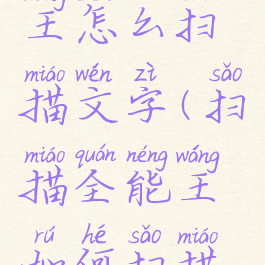 王怎么扫
miáo wén zì sǎo
描文字(扫
miáo quán néng wáng
描全能王
rú hé sǎo miáo
如何扫描